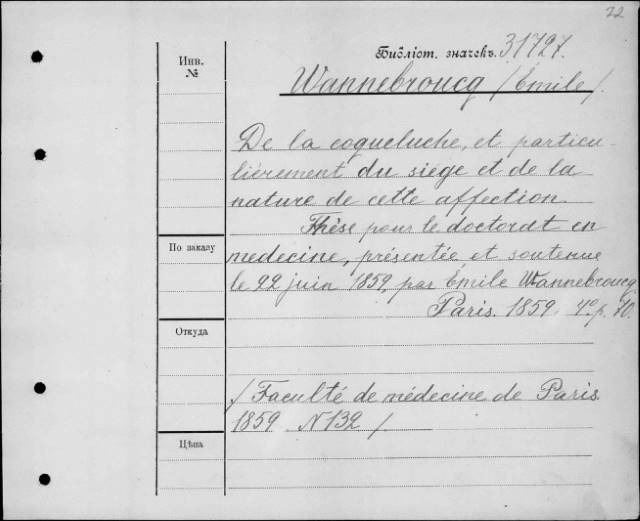 22
Инв.
№
Библіот. значекъ. 31727.
Wannebroucq / Emile /.
De la coqueluche, et particu-
lièrement du siége et de la
nature de cette affection.
Thèse pour le doctorat en
По заказу
medecine, présentée et soutenue
le 22 juin 1859, par Émile Wannebroucq
Paris. 1859. 4º p. 70.
Откуда
/ Faculté de médecine de Paris.
1859 N 132 /.
Цѣна